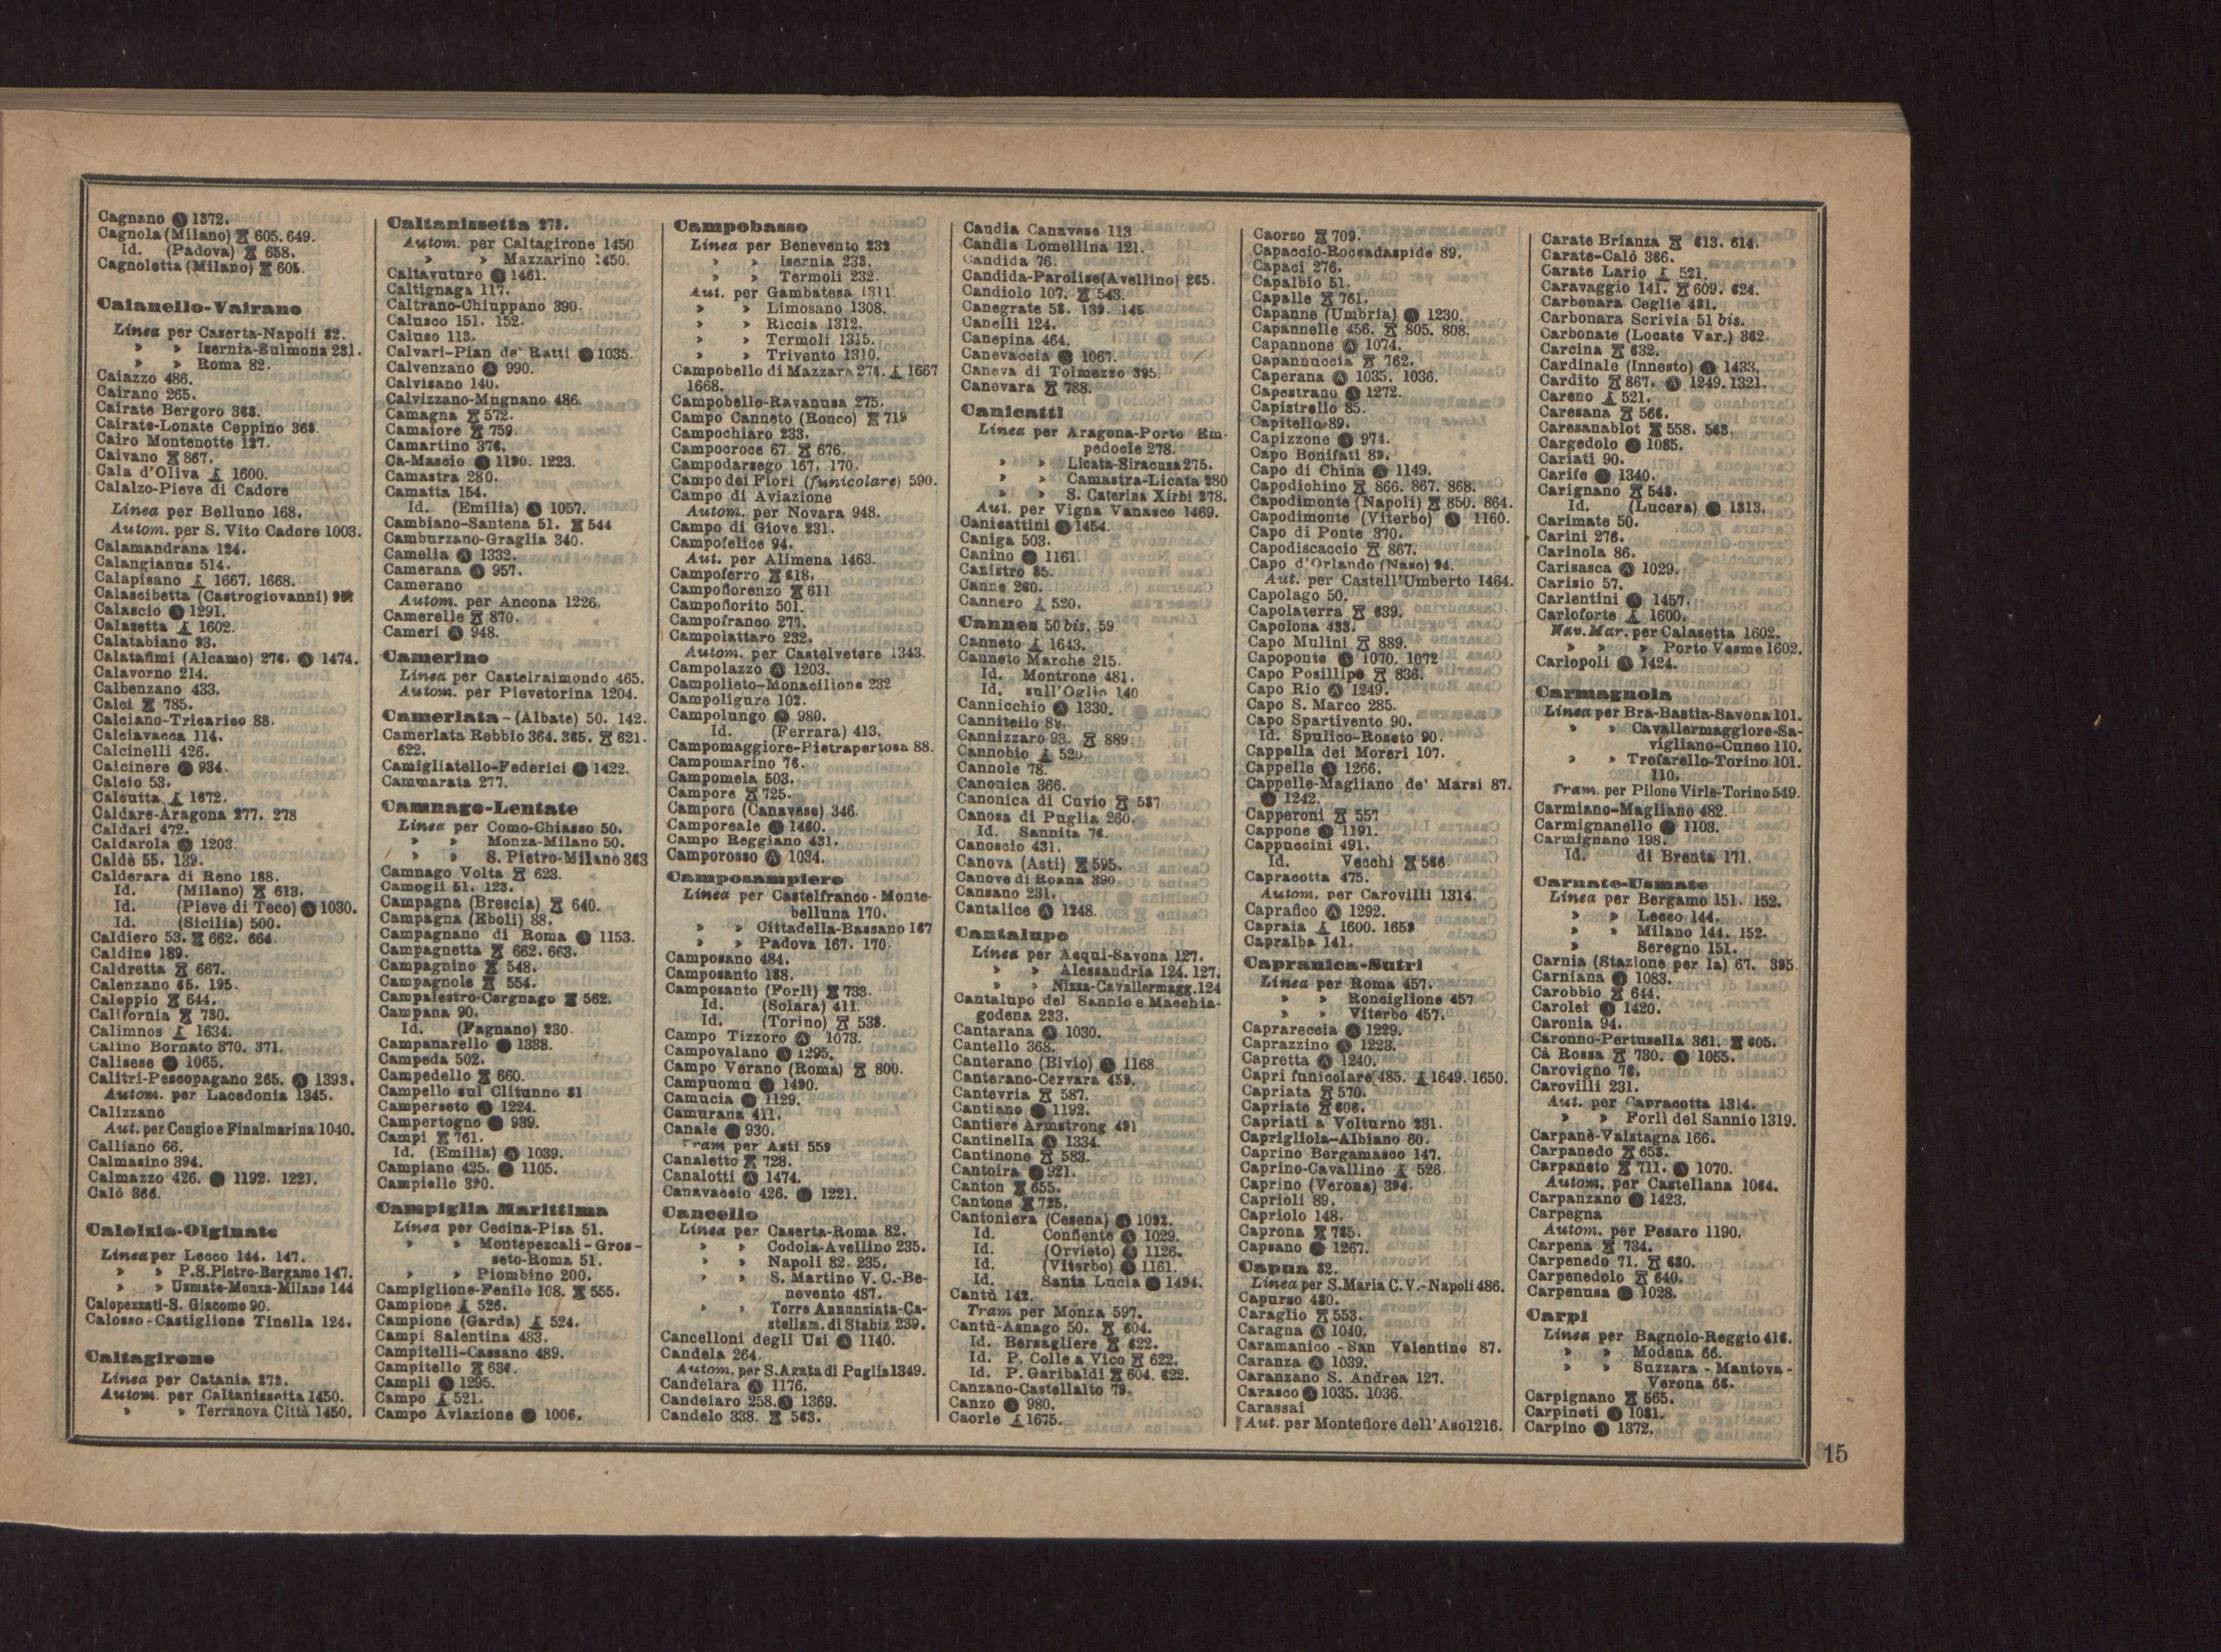 Cagnano Ⓐ 1372.
Cagnola (Milano) 605. 649.
Id. (Padova) 658.
Cagnoletta (Milano) 605.
Caianello-Vairano
Linea per Caserta-Napoli 82.
» » Isernia-Sulmona 231.
» » Roma 82.
Caiazzo 486.
Cairano 265.
Cairate Bergoro 363.
Cairate-Lonate Ceppino 363.
Cairo Montenotte 127.
Caivano 867.
Cala d'Oliva 1600.
Calalzo-Pieve di Cadore
Linea per Belluno 168.
Autom. per S. Vito Cadore 1003.
Calamandrana 124.
Calangianus 514.
Calapisano 1667. 1668.
Calascibetta (Castrogiovanni)
Calascio Ⓐ 1291.
Calasetta 1602.
Calatabiano 93.
Calatafimi (Alcamo) 276. Ⓐ 1474.
Calavorno 214.
Calbenzano 433.
Calci 785.
Calciano-Tricarico 88.
Calciavacca 114.
Calcinelli 426.
Calcinere Ⓐ 934.
Calcio 53.
Calcutta 1672.
Caldare-Aragona 277. 278
Caldari 472.
Caldarola Ⓐ 1203.
Caldè 55. 139.
Calderara di Reno 188.
Id. (Milano) 613.
Id. (Pieve di Teco) Ⓐ 1030.
Id. (Sicilia) 500.
Caldiero 53. 662. 664.
Caldine 189.
Caldretta 667.
Calenzano 65. 195.
Caleppio 644.
California 730.
Calimnos 1634.
Calino Bornato 370. 371.
Calisese Ⓐ 1065.
Calitri-Pescopagano 265. Ⓐ 1393.
Autom. per Lacedonia 1345.
Calizzano
Aut. per Cengio e Finalmarina 1040.
Calliano 66.
Calmasino 394.
Calmazzo 426. Ⓐ 1192. 1221.
Calò 366.
Calolzio-Olginate
Linea per Lecco 144. 147.
» » P.S.Pietro-Bergamo 147.
» » Usmate-Monza-Milano 144
Calopezzati-S. Giacomo 90.
Calosso-Castiglione Tinella 124.
Caltagirone
Linea per Catania 273.
Autom. per Caltanissetta 1450.
» » Terranova Città 1450.
Caltanissetta 278.
Autom. per Caltagirone 1450
» » Mazzarino 1450.
Caltavuturo Ⓐ 1461.
Caltignaga 117.
Caltrano-Chiuppano 390.
Calusco 151. 152.
Caluso 113.
Calvari-Pian de' Ratti Ⓐ 1035.
Calvenzano Ⓐ 990.
Calvisano 140.
Calvizzano-Mugnano 486.
Camagna 572.
Camaiore 759.
Camartino 376.
Ca-Mascio Ⓐ 1190. 1223.
Camastra 280.
Camatta 154.
Id. (Emilia) Ⓐ 1057.
Cambiano-Santena 51. 544
Camburzano-Graglia 340.
Camelia Ⓐ 1332.
Camerana Ⓐ 957.
Camerano
Autom. per Ancona 1226.
Camerelle 870.
Cameri Ⓐ 948.
Camerino
Linea per Castelraimondo 465.
Autom. per Pievetorina 1204.
Camerlata - (Albate) 50. 142.
Camerlata Rebbio 364. 365. 621.
622.
Camigliatello-Federici Ⓐ 1422.
Cammarata 277.
Camnago-Lentate
Linea per Como-Chiasso 50.
» » Monza-Milano 50.
» » S. Pietro-Milano 363
Camnago Volta 623.
Camogli 51. 123.
Campagna (Brescia) 640.
Campagna (Eboli) 88.
Campagnano di Roma Ⓐ 1153.
Campagnetta 662. 663.
Campagnino 548.
Campagnole 554.
Campalestro-Cergnago 562.
Campana 90.
Id. (Fagnano) 230.
Campanarello Ⓐ 1338.
Campeda 502.
Campedello 660.
Campello sul Clitunno 81
Camperseto Ⓐ 1224.
Campertogno Ⓐ 939.
Campi 761.
Id. (Emilia) Ⓐ 1039.
Campiano 425. Ⓐ 1105.
Campiello 390.
Campiglia Marittima
Linea per Cecina-Pisa 51.
» » Montepescali-Gros-
seto-Roma 51.
» » Piombino 200.
Campiglione-Fenile 108. 555.
Campione 526.
Campione (Garda) 524.
Campi Salentina 483.
Campitelli-Cassano 489.
Campitello 636.
Campli Ⓐ 1295.
Campo 521.
Campo Aviazione Ⓐ 1006.
Campobasso
Linea per Benevento 232
» » Isernia 233.
» » Termoli 232.
Aut. per Gambatesa 1311.
» » Limosano 1308.
» » Riccia 1312.
» » Termoli 1315.
» » Trivento 1310.
Campobello di Mazzara 276. 1667
1668.
Campobello-Ravanusa 275.
Campo Canneto (Ronco) 719
Campochiaro 233.
Campocroce 67. 676.
Campodarsego 167. 170.
Campo dei Fiori (funicolare) 590.
Campo di Aviazione
Autom. per Novara 948.
Campo di Giove 231.
Campofelice 94.
Aut. per Alimena 1463.
Campoferro 618.
Campoflorenzo 611
Campoflorito 501.
Campofranco 277.
Campolattaro 232.
Autom. per Castelvetere 1343.
Campolazzo Ⓐ 1203.
Campolieto-Monacilione 232
Campoligure 102.
Campolungo Ⓐ 980.
Id. (Ferrara) 413.
Campomaggiore-Pietrapertosa 88.
Campomarino 76.
Campomela 503.
Campore 725.
Campore (Canavese) 346.
Camporeale Ⓐ 1460.
Campo Reggiano 431.
Camporosso Ⓐ 1034.
Camposampiero
Linea per Castelfranco-Monte-
belluna 170.
» » Cittadella-Bassano 167
» » Padova 167. 170.
Camposano 484.
Camposanto 188.
Camposanto (Forlì) 733.
Id. (Solara) 411.
Id. (Torino) 538.
Campo Tizzoro Ⓐ 1073.
Campovalano Ⓐ 1295.
Campo Verano (Roma) 800.
Campuomu Ⓐ 1490.
Camucia Ⓐ 1129.
Camurana 411.
Canale Ⓐ 930.
Tram per Asti 559
Canaletto 728.
Canalotti Ⓐ 1474.
Canavaccio 426. Ⓐ 1221.
Cancello
Linea per Caserta-Roma 82.
» » Codola-Avellino 235.
» » Napoli 82. 235.
» » S. Martino V. C.-Be-
nevento 487.
» » Torre Annunziata-Ca-
stellam. di Stabia 239.
Cancelloni degli Usi Ⓐ 1140.
Candela 264.
Autom. per S. Agata di Puglia 1349.
Candelara Ⓐ 1176.
Candelaro 258. Ⓐ 1369.
Candelo 338. 563.
Candia Canavese 113
Candia Lomellina 121.
Candida 76.
Candida-Parolise (Avellino) 265.
Candiolo 107. 543.
Canegrate 58. 139. 145
Canelli 124.
Canepina 464.
Canevaccia Ⓐ 1067.
Caneva di Tolmezzo 395.
Canevara 788.
Canicatti
Linea per Aragona-Porto Em-
pedocle 278.
» » Licata-Siracusa 275.
» » Camastra-Licata 280
» » S. Caterina Xirbi 278.
Aut. per Vigna Vanasco 1469.
Canicattini Ⓐ 1454.
Caniga 503.
Canino Ⓐ 1161.
Canistro 85.
Canne 260.
Cannero 520.
Cannes 50 bis. 59.
Canneto 1643.
Canneto Marche 215.
Id. Montrone 481.
Id. sull'Oglio 140
Cannicchio Ⓐ 1330.
Cannitello 89.
Cannizzaro 93. 889
Cannobio 520.
Cannole 78.
Canonica 366.
Canonica di Cuvio 587
Canosa di Puglia 260.
Id. Sannita 76.
Canoscio 431.
Canova (Asti) 595.
Canove di Roana 390
Cansano 231.
Cantalice Ⓐ 1248.
Cantalupo
Linea per Acqui-Savona 127.
» » Alessandria 124. 127.
» » Nizza-Cavallermagg. 124
Cantalupo del Sannio e Macchia-
godena 233.
Cantarana Ⓐ 1030.
Cantello 368.
Canterano (Bivio) Ⓐ 1168.
Canterano-Cervara 459.
Cantevria 587.
Cantiano Ⓐ 1192.
Cantiere Armstrong 491
Cantinella Ⓐ 1334.
Cantinone 583.
Cantoira Ⓐ 921.
Canton 655.
Cantone 725.
Cantoniera (Cesena) Ⓐ 1092.
Id. Confiente Ⓐ 1029.
Id. (Orvieto) Ⓐ 1126.
Id. (Viterbo) Ⓐ 1161.
Id. Santa Lucia Ⓐ 1494.
Cantù 142.
Tram per Monza 597.
Cantù-Asnago 50. 604.
Id. Bersagliere 622.
Id. P. Colle a Vico 622.
Id. P. Garibaldi 604. 622.
Canzano-Castellalto 79.
Canzo Ⓐ 980.
Caorle 1675.
Caorso 709.
Capaccio-Roccadaspide 89.
Capaci 276.
Capalbio 51.
Capalle 761.
Capanne (Umbria) Ⓐ 1230.
Capannelle 456. 805. 808.
Capannone Ⓐ 1074.
Capannuccia 762.
Caperana Ⓐ 1035. 1036.
Capestrano Ⓐ 1272.
Capistrello 85.
Capitello 89.
Capizzone Ⓐ 974.
Capo Bonifati 89.
Capo di China Ⓐ 1149.
Capodichino 866. 867. 868.
Capodimonte (Napoli) 850. 864.
Capodimonte (Viterbo) Ⓐ 1160.
Capo di Ponte 370.
Capodiscaccio 867.
Capo d'Orlando (Naso) 94.
Aut. per Castell'Umberto 1464.
Capolago 50.
Capolaterra 639.
Capolona 433.
Capo Mulini 889.
Capoponte Ⓐ 1070. 1072
Capo Posillipo 836.
Capo Rio Ⓐ 1249.
Capo S. Marco 285.
Capo Spartivento 90.
Id. Spulico-Roseto 90.
Cappella dei Moreri 107.
Cappelle Ⓐ 1266.
Cappelle-Magliano de' Marsi 87.
Ⓐ 1242.
Capperoni 557
Cappone Ⓐ 1191.
Cappuccini 491.
Id. Vecchi 566.
Capracotta 475.
Autom. per Carovilli 1314.
Caprafico Ⓐ 1292.
Capraia 1600. 1659
Capralba 141.
Capranica-Sutri
Linea per Roma 457.
» » Ronciglione 457
» » Viterbo 457.
Caprareccia Ⓐ 1229.
Caprazzino Ⓐ 1223.
Capretta Ⓐ 1240.
Capri funicolare 485. 1649. 1650.
Capriata 570.
Capriate 606.
Capriati a Volturno 231.
Caprigliola-Albiano 60.
Caprino Bergamasco 147.
Caprino-Cavallino 526.
Caprino (Verona) 394.
Caprioli 89.
Capriolo 148.
Caprona 785.
Capsano Ⓐ 1267.
Capua 82.
Linea per S. Maria C.V.-Napoli 486.
Capurso 480.
Caraglio 553.
Caragna Ⓐ 1040.
Caramanico-San Valentino 87.
Caranza Ⓐ 1039.
Caranzano S. Andrea 127.
Carasco Ⓐ 1035. 1036.
Carassai
Aut. per Montefiore dell'Aso 1216.
Carate Brianza 613. 614.
Carate-Calò 366.
Carate Lario 521.
Caravaggio 141. 609. 624.
Carbonara Ceglie 481.
Carbonara Scrivia 51 bis.
Carbonate (Locate Var.) 362.
Carcina 632.
Cardinale (Innesto) Ⓐ 1433.
Cardito 867. Ⓐ 1249. 1321.
Careno 521.
Caresana 566.
Caresanablot 558. 563.
Cargedolo Ⓐ 1085.
Cariati 90.
Carife Ⓐ 1340.
Carignano 543.
Id. (Lucera) Ⓐ 1313.
Carimate 50.
Carini 276.
Carinola 86.
Carisasca Ⓐ 1029.
Carisio 57.
Carlentini Ⓐ 1457.
Carloforte 1600.
Nav. Mar. per Calasetta 1602.
» » » Porto Vesme 1602.
Carlopoli Ⓐ 1424.
Carmagnola
Linea per Bra-Bastia-Savona 101.
» » Cavallermaggiore-Sa-
vigliano-Cuneo 110.
» » Trofarello-Torino 101.
110.
Tram. per Pilone Virle-Torino 549.
Carmiano-Magliano 482.
Carmignanello Ⓐ 1103.
Carmignano 198.
Id. di Brenta 171.
Carnate-Usmate
Linea per Bergamo 151. 152.
» » Lecco 144.
» » Milano 144. 152.
» Seregno 151.
Carnia (Stazione per la) 67. 395.
Carniana Ⓐ 1083.
Carobbio 644.
Carolei Ⓐ 1420.
Caronia 94.
Caronno-Pertusella 361. 605.
Cà Rossa 730. Ⓐ 1055.
Carovigno 76.
Carovilli 231.
Aut. per Capracotta 1314.
» » Forlì del Sannio 1319.
Carpanè-Valstagna 166.
Carpanedo 658.
Carpaneto 711. Ⓐ 1070.
Autom. per Castellana 1064.
Carpanzano Ⓐ 1423.
Carpegna
Autom. per Pesaro 1190.
Carpena 734.
Carpenedo 71. 680.
Carpenedolo 640.
Carpenusa Ⓐ 1028.
Carpi
Linea per Bagnolo-Reggio 416.
» » Modena 66.
» » Suzzara-Mantova-
Verona 66.
Carpignano 565.
Carpineti Ⓐ 1081.
Carpino Ⓐ 1372.
15